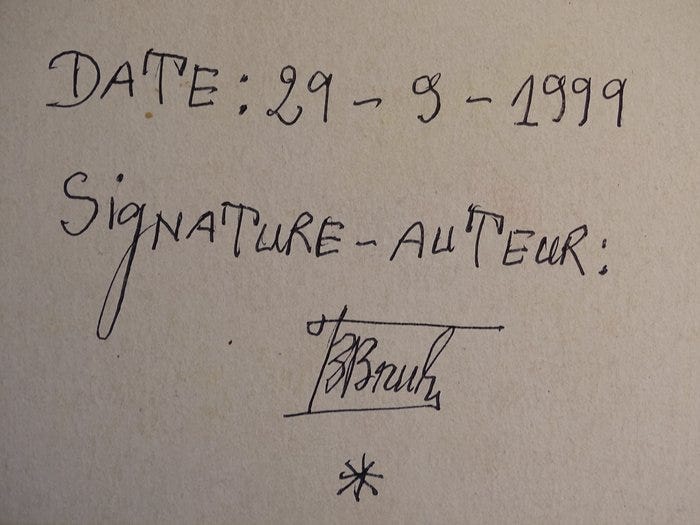 DATE: 29 - 9 - 1999
SIGNATURE - AUTEUR:
*